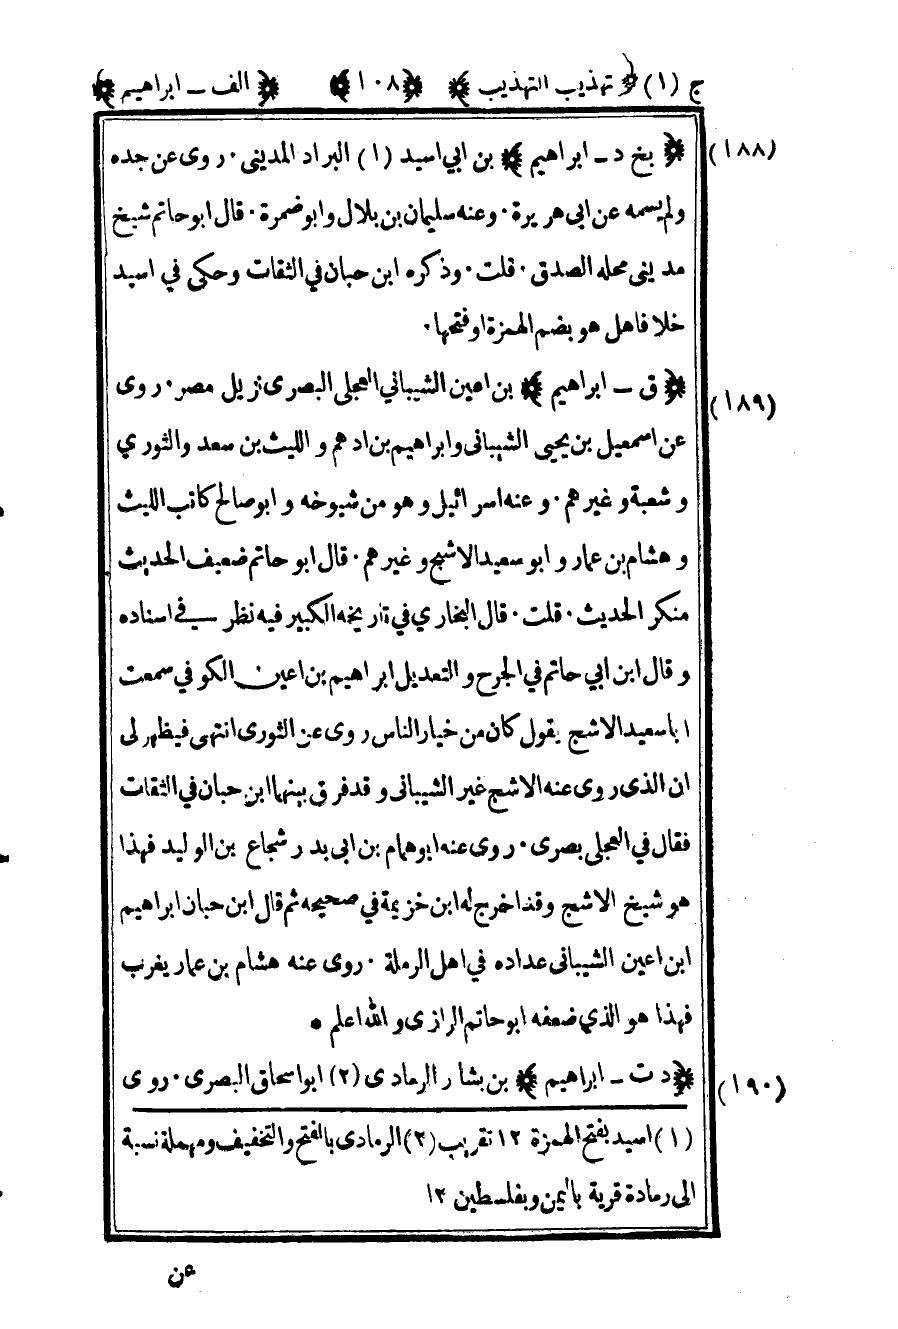 ج (١) ﴿ تهذيب التهذيب ﴾ ﴿ ١٠٨ ﴾ ﴿ الف ـ ابراهيم ﴾
(١٨٨) ﴿ بخ د ـ ابراهيم ﴾ بن ابي اسيد (١) البراد المديني · روى عن جده
ولم يسمه عن ابى هريرة · وعنه سليمان بن بلال وابو ضمرة · قال ابو حاتم شيخ
مديني محله الصدق · قلت · وذكره ابن حبان في الثقات وحكى في اسيد
خلافا هل هو بضم الهمزة او فتحها ·
(١٨٩) ﴿ ق ـ ابراهيم ﴾ بن اعين الشيباني العجلي البصرى نزيل مصر · روى
عن اسمعيل بن يحيى الشيبانى وابراهيم بن ادهم و الليث بن سعد والثوري
و شعبة و غيرهم · و عنه اسرائيل و هو من شيوخه و ابو صالح كاتب الليث
و هشام بن عمار و ابو سعيد الاشج و غيرهم · قال ابو حاتم ضعيف الحديث
منكر الحديث · قلت · قال البخاري في تاريخه الكبير فيه نظر في اسناده
و قال ابن أبي حاتم في الجرح و التعديل ابراهيم بن اعين الكوفي سمعت
ابا سعيد الاشج يقول كان من خيار الناس روى عن الثورى انتهى فيظهر لى
ان الذى روى عنه الاشج غير الشيبانى و قد فرق بينهما ابن حبان في الثقات
فقال في العجلى بصرى · روى عنه ابو همام بن ابى بدر شجاع بن الوليد فهذا
هو شيخ الاشج وقد اخرج له ابن خزيمة في صحيحه ثم قال ابن حبان ابراهيم
ابن اعين الشيبانى عداده في اهل الرملة · روى عنه هشام بن عمار يغرب
فهذا هو الذي ضعفه ابو حاتم الرازى و الله اعلم •
(١٩٠) ﴿ د ت ـ ابراهيم ﴾ بن بشار الرمادى (٢) ابو اسحاق البصرى · روى
(١) اسيد بفتح الهمزة ١٢ تقريب (٢) الرمادى بالفتح والتخفيف ومهملة نسبة
الى رمادة قرية باليمن وبفلسطين ١٢
عن